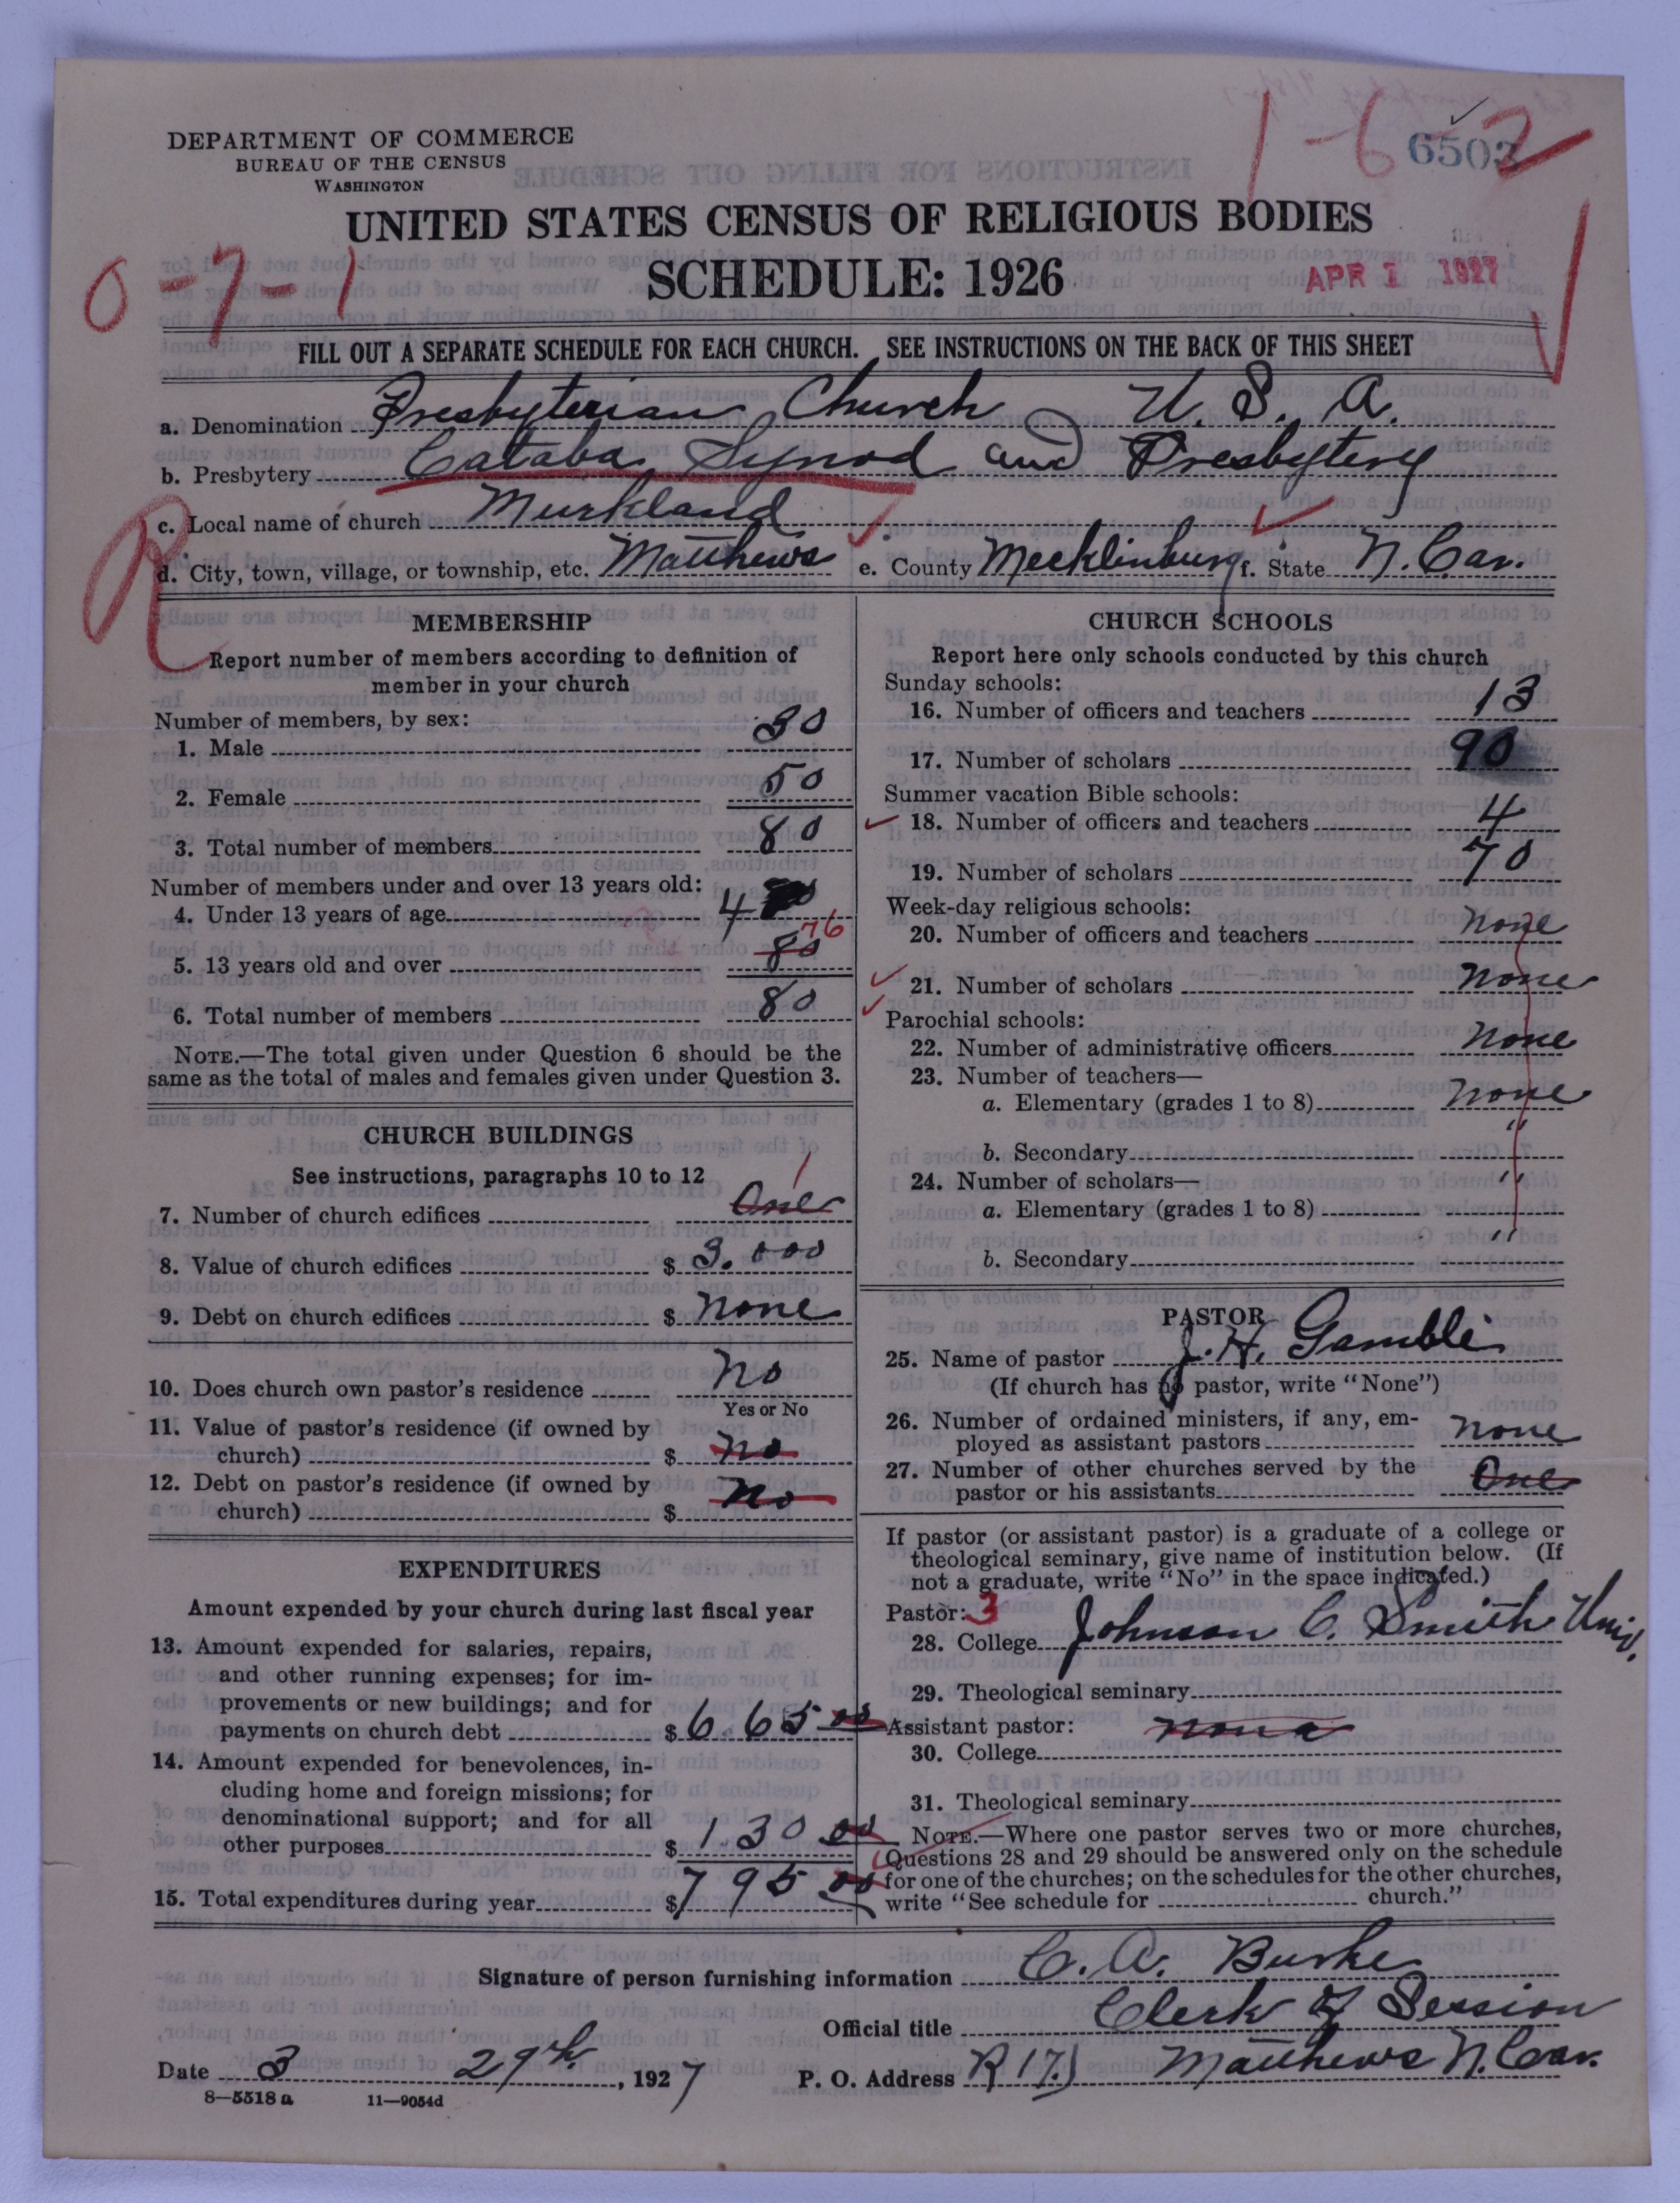 1-6-2
6503
DEPARTMENT OF COMMERCE
BUREAU OF THE CENSUS
WASHINGTON
UNITED STATES CENSUS OF RELIGIOUS BODIES
0-7-1
SCHEDULE: 1926
APR 1 1927
FILL OUT A SEPARATE SCHEDULE FOR EACH CHURCH. SEE INSTRUCTIONS ON THE BACK OF THIS SHEET
a. Denomination Presbyterian Church U. S. A.
b. Presbytery Cataba Synod and Presbytery
c. Local name of church Murkland
R
d. City, town, village, or township, etc. Matthews e. County Mecklinburg f. State N. Car.
MEMBERSHIP
Report number of members according to definition of
member in your church
Number of members, by sex:
1. Male 30
2. Female 50
3. Total number of members 80
Number of members under and over 13 years old:
4. Under 13 years of age 4
76
5. 13 years old and over 80
6. Total number of members 80
NOTE.—The total given under Question 6 should be the
same as the total of males and females given under Question 3.
CHURCH BUILDINGS
See instructions, paragraphs 10 to 12
1
7. Number of church edifices One
8. Value of church edifices $ 3.000
9. Debt on church edifices $ none
10. Does church own pastor's residence no
Yes or No
11. Value of pastor's residence (if owned by
church) $ no
12. Debt on pastor's residence (if owned by
church) $ no
EXPENDITURES
Amount expended by your church during last fiscal year
13. Amount expended for salaries, repairs,
and other running expenses; for im-
provements or new buildings; and for
payments on church debt $ 6.65 00
14. Amount expended for benevolences, in-
cluding home and foreign missions; for
denominational support; and for all
other purposes $ 1.30 00
15. Total expenditures during year $ 795 00
CHURCH SCHOOLS
Report here only schools conducted by this church
Sunday schools:
16. Number of officers and teachers 13
17. Number of scholars 90
Summer vacation Bible schools:
18. Number of officers and teachers 4
19. Number of scholars 70
Week-day religious schools:
20. Number of officers and teachers none
21. Number of scholars none
Parochial schools:
22. Number of administrative officers none
23. Number of teachers—
a. Elementary (grades 1 to 8) none
b. Secondary "
24. Number of scholars—
a. Elementary (grades 1 to 8) "
b. Secondary "
PASTOR
25. Name of pastor J. H. Gamble
(If church has no pastor, write "None")
26. Number of ordained ministers, if any, em-
ployed as assistant pastors none
27. Number of other churches served by the
pastor or his assistants One
If pastor (or assistant pastor) is a graduate of a college or
theological seminary, give name of institution below. (If
not a graduate, write "No" in the space indicated.)
Pastor: 3
28. College Johnson C. Smith Univ.
29. Theological seminary
Assistant pastor: none
30. College
31. Theological seminary
NOTE.—Where one pastor serves two or more churches,
Questions 28 and 29 should be answered only on the schedule
for one of the churches; on the schedules for the other churches,
write "See schedule for church."
Signature of person furnishing information C. A. Burke
Official title Clerk of Session
Date 3 29th, 1927 P. O. Address R 17 Matthews N. Car.
8—5518 a 11—9054d